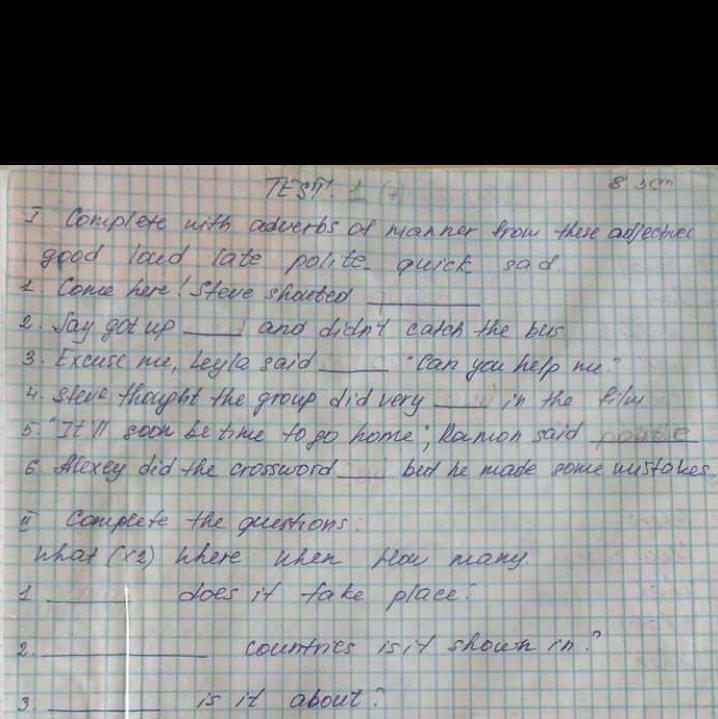 TEST! 1 (7) 8 
I Complete with adverbs of manner from these adjectives
good loud late polite quick sad
1. Come here! Steve shouted ______
2. Jay got up ____ and didn't catch the bus.
3. Excuse me, Leyla said ____ "Can you help me?
4. Steve thought the group did very ____ in the film
5. "It'll soon be time to go home", Ramon said polite
6. Alexey did the crossword ___ but he made some mistakes.
II Complete the questions:
What (x2) Where when How many.
1 ______ does it take place?
2. ____________ countries is it shown in?
3. ________ is it about?